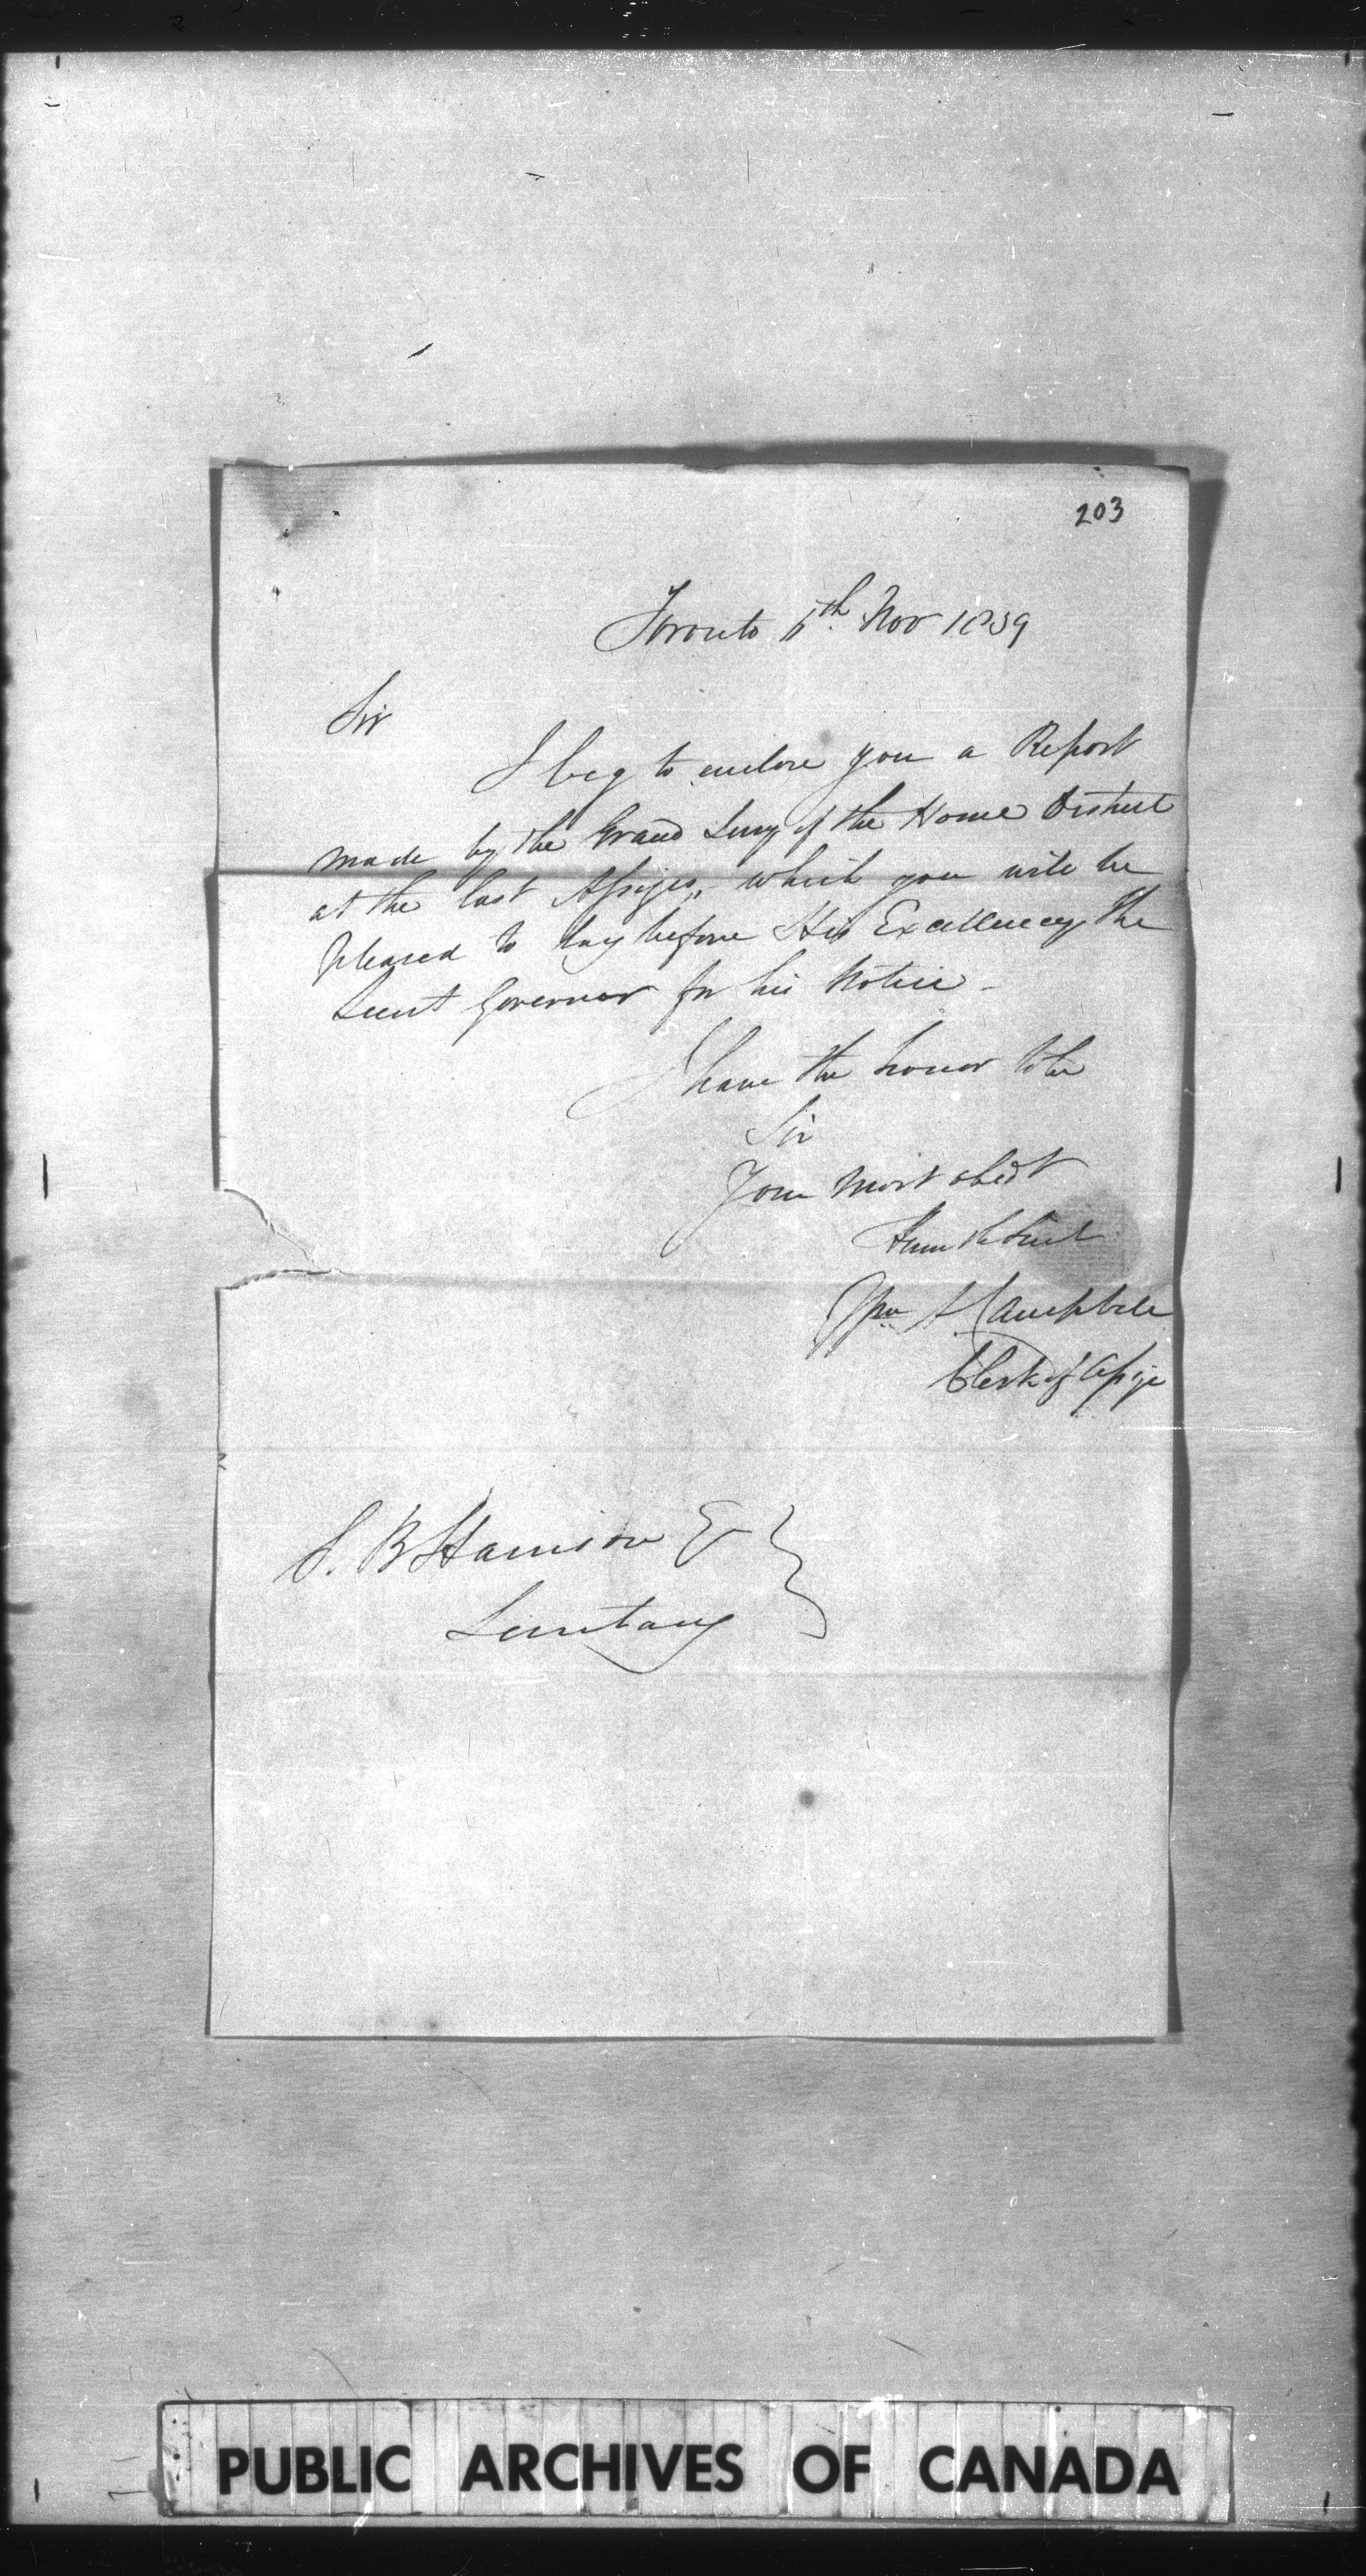 203
Toronto 6th Nov 1839
Sir
I beg to enclose you a Report
made by the Grand Jury of the Home District
at the last Assizes, which you will be
pleased to lay before His Excellency the
Lieut Governor for his Notice -
I have the honor to be
Sir
Your Most obedt
Humble Servt
Wm A Campbell
Clerk of Assize
S. B Harrison E
Secretary
PUBLIC ARCHIVES OF CANADA